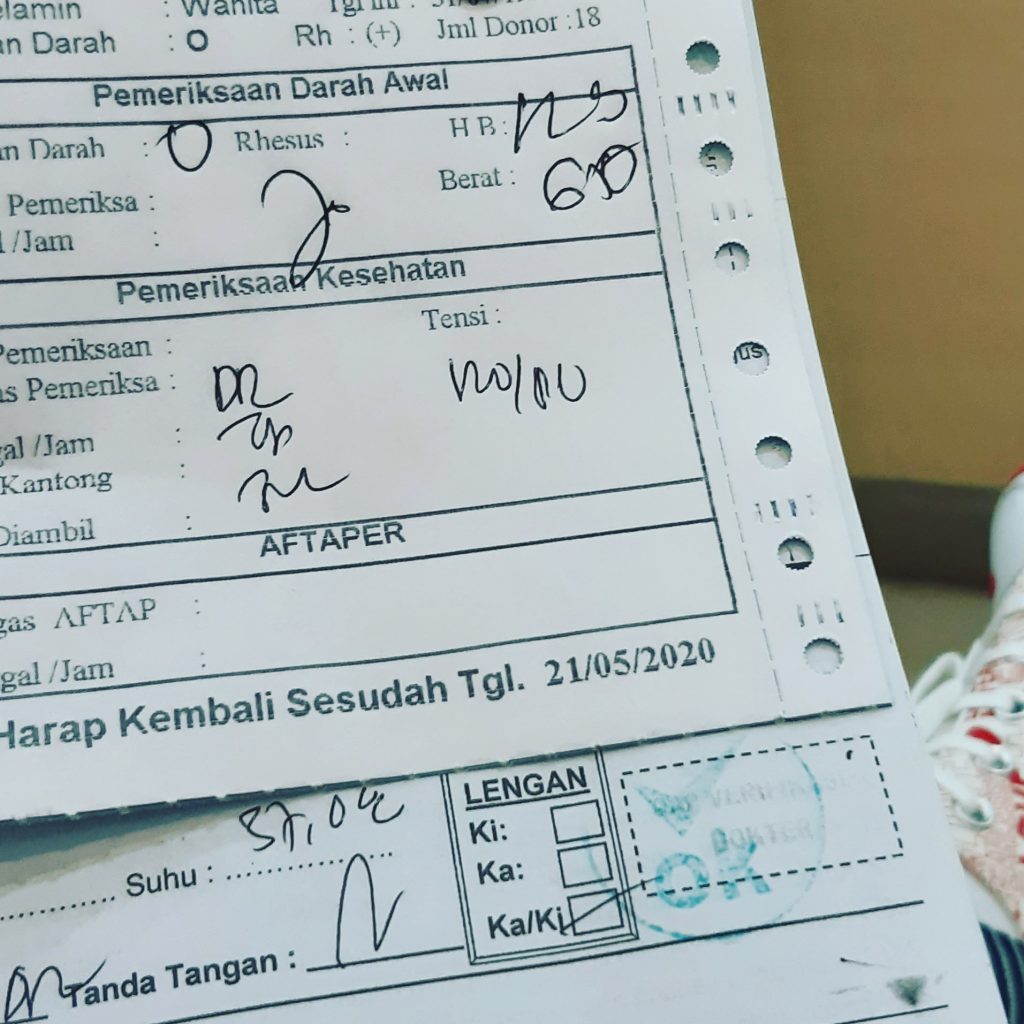 elamin : Wanita Tgl
an Darah : O Rh : (+) Jml Donor :18
Pemeriksaan Darah Awal
an Darah : O Rhesus : H B :
Pemeriksa : Berat : 60
/Jam :
Pemeriksaan Kesehatan
Tensi :
Pemeriksaan :
as Pemeriksa : DR
gal /Jam :
Kantong :
Diambil :
AFTAPER
gas AFTAP :
gal /Jam :
Harap Kembali Sesudah Tgl. 21/05/2020
LENGAN
Ki:
Ka:
Ka/Ki
VERIFIKASI
DOKTER
OK
Suhu : 37,0°C
Tanda Tangan :